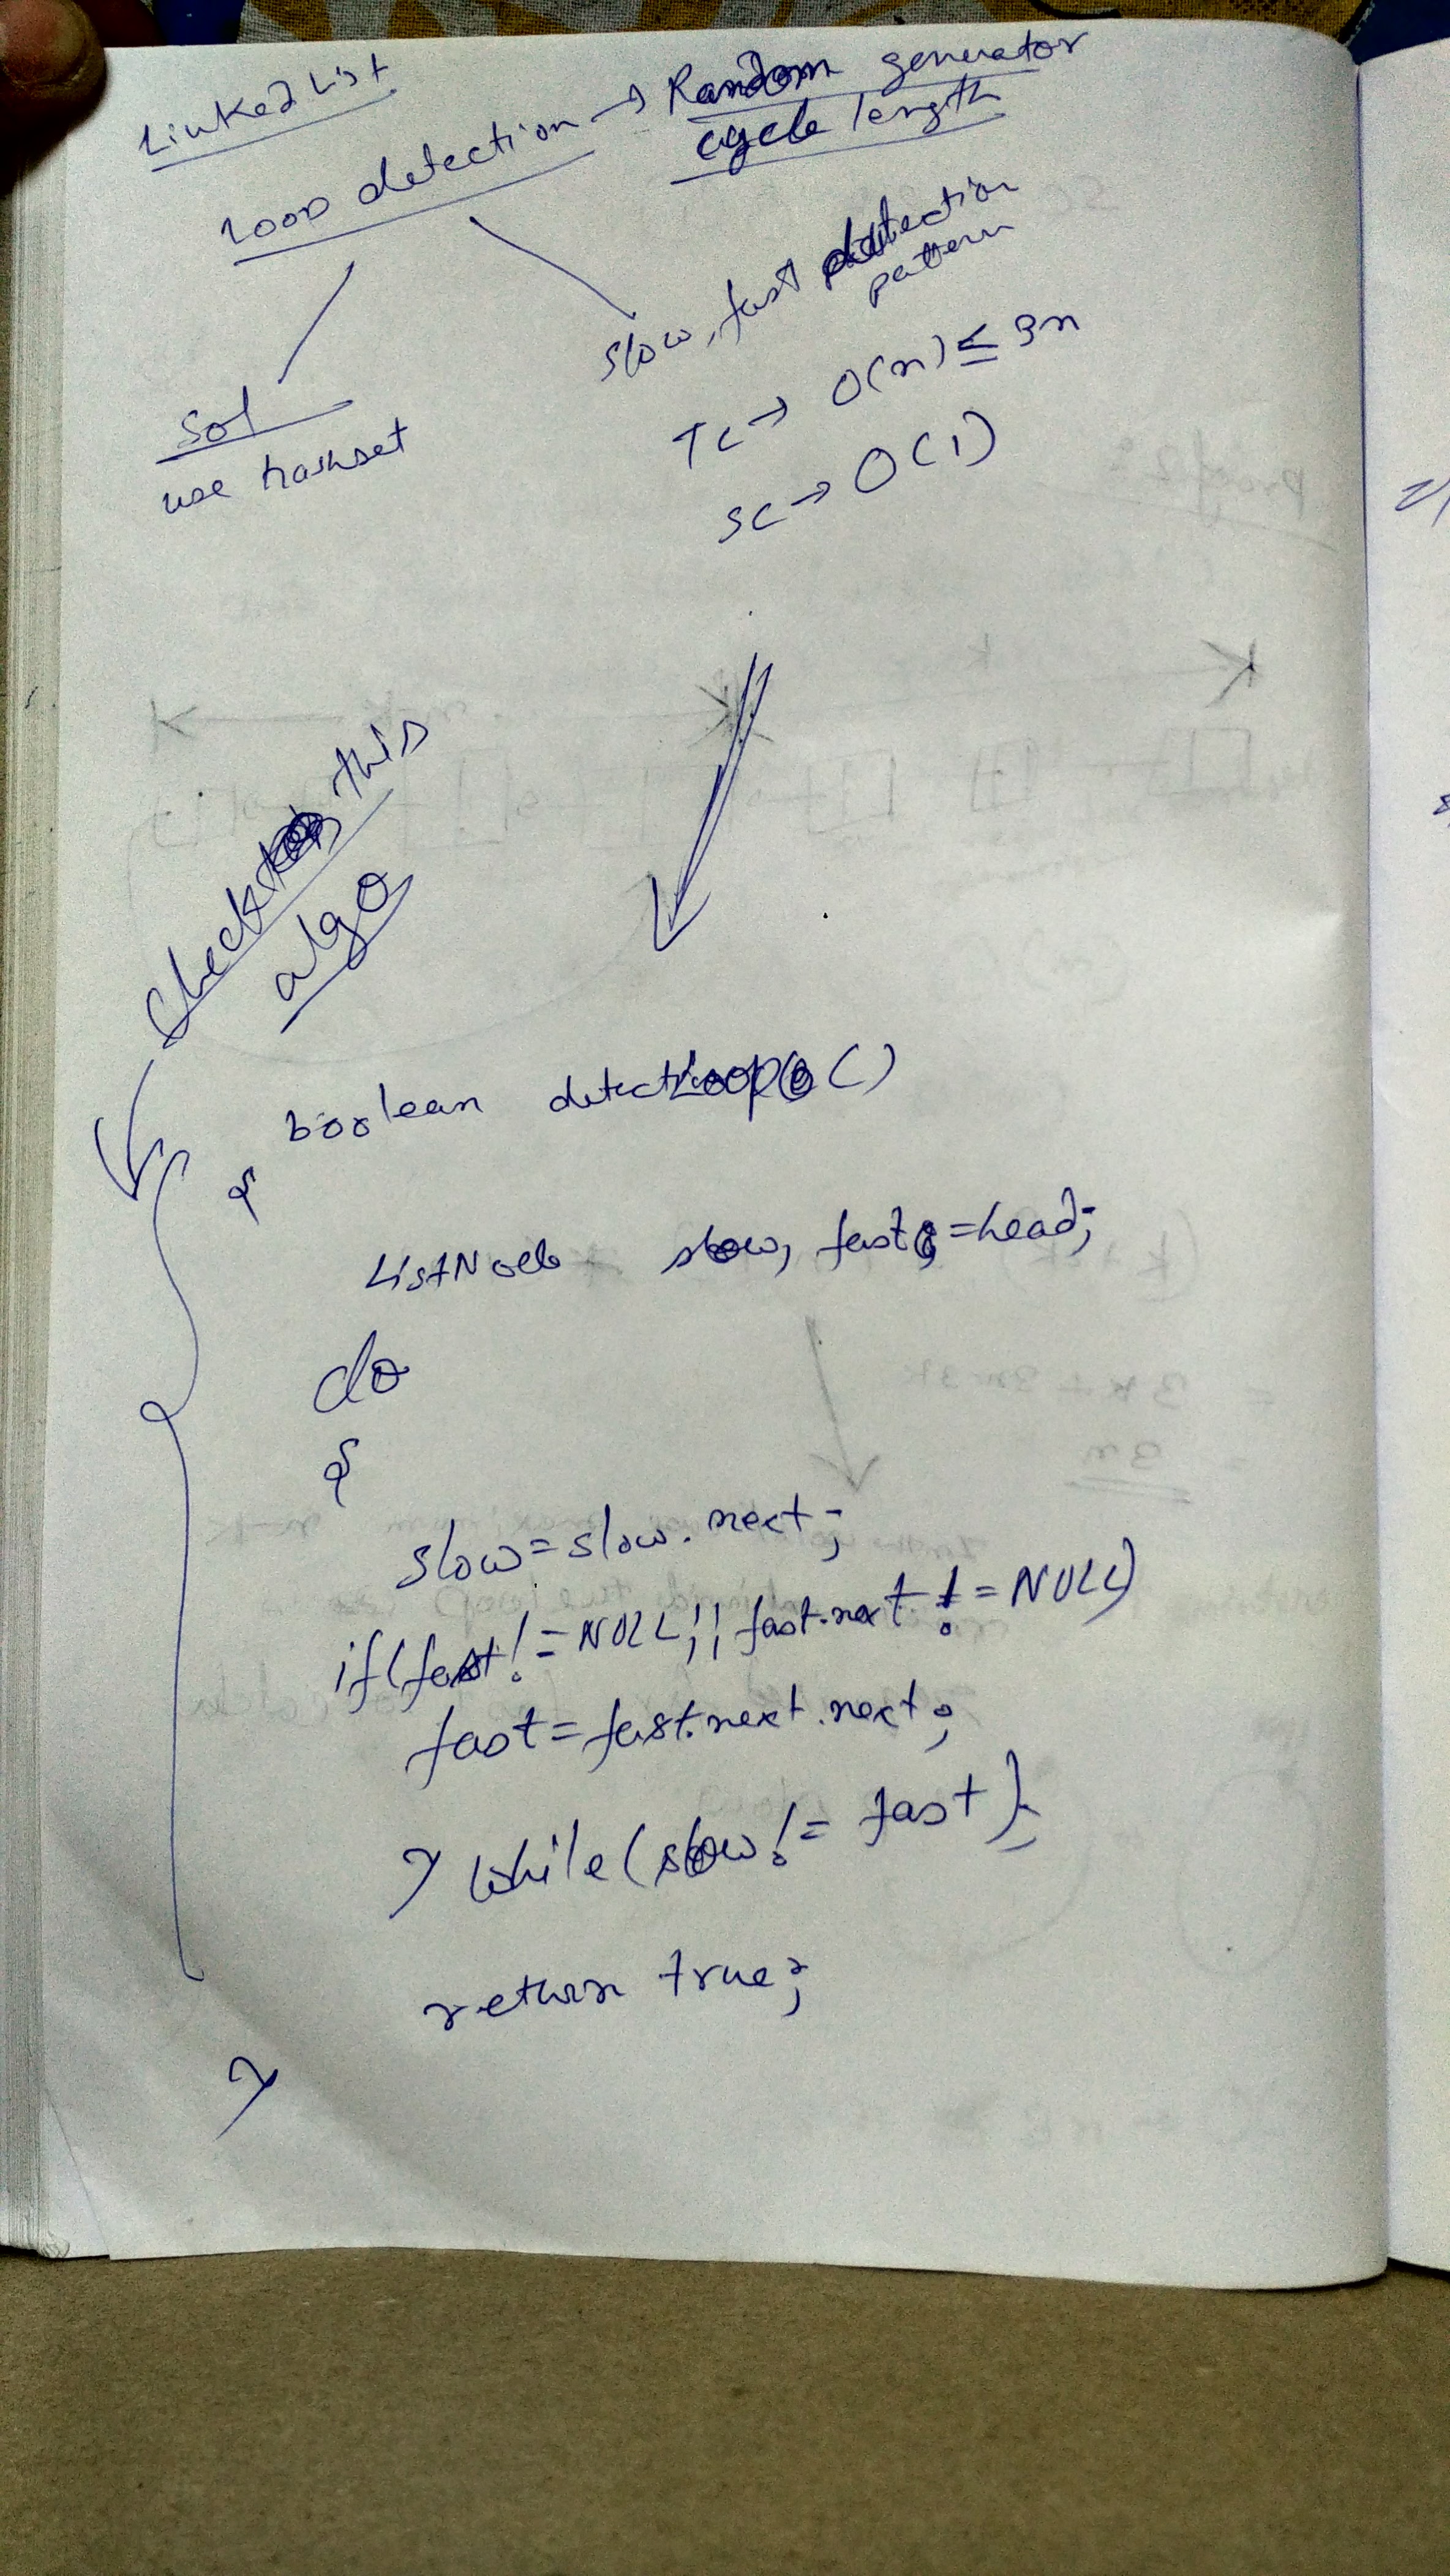 Linked List
Loop detection → Random generator
cycle length
slow, fast detection
pattern
TC → O(n) ≤ 3n
SC → O(1)
Sol
use hashset
check this
algo
boolean detectLoop ()
{
ListNode slow, fast = head;
do
{
slow = slow.next;
if(fast != NULL || fast.next != NULL)
fast = fast.next.next;
} while (slow != fast);
return true;
}